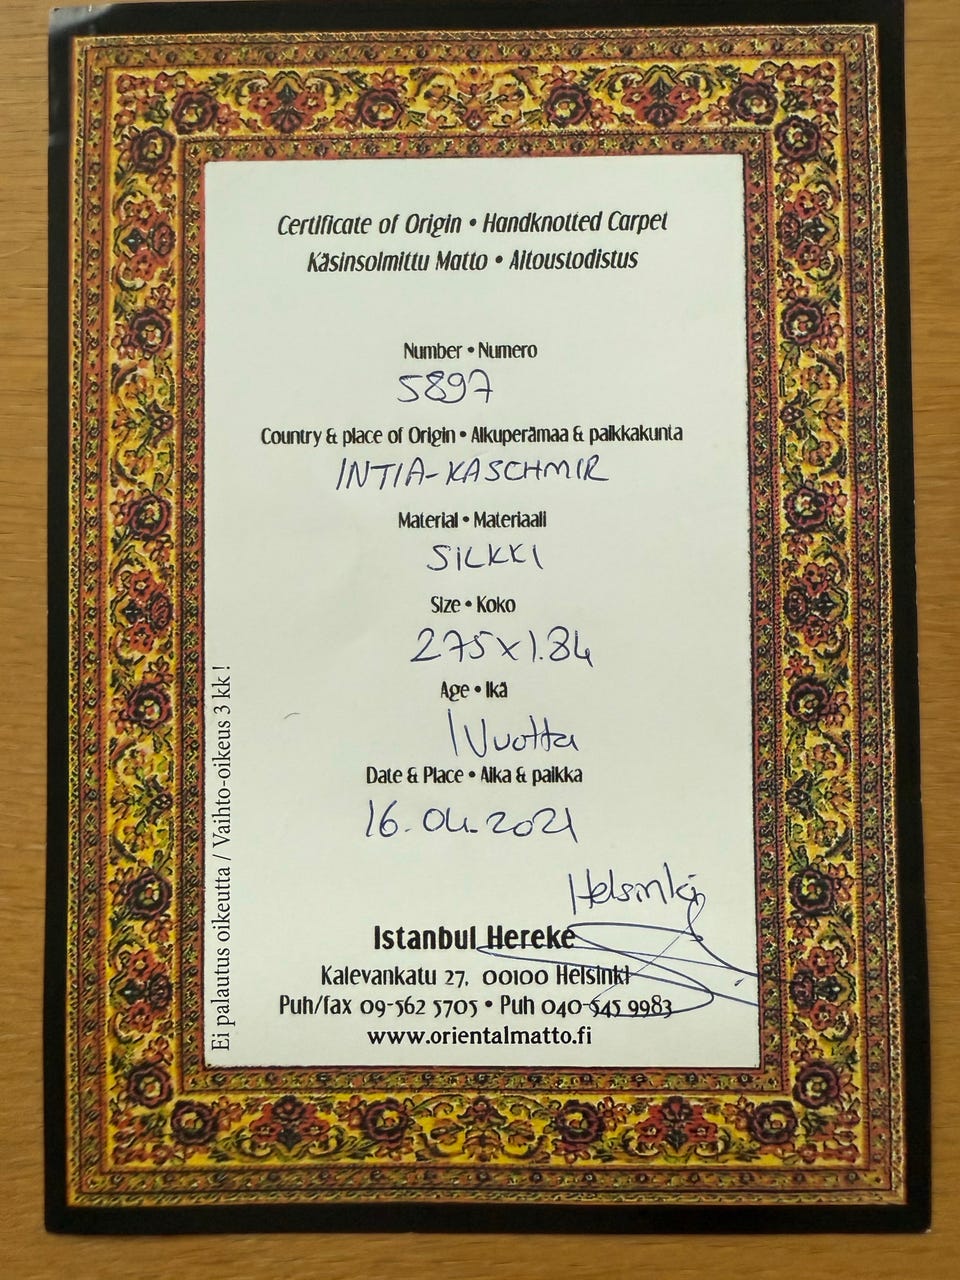 Certificate of Origin • Handknotted Carpet
Käsinsolmittu Matto • Aitoustodistus
Number • Numero
5897
Country & place of Origin • Alkuperämaa & paikkakunta
INTIA-KASCHMIR
Material • Materiaali
SILKKI
Size • Koko
275x1.84
Age • Ikä
1 Vuotta
Date & Place • Aika & paikka
16.04.2021
Helsinki
Istanbul Hereke
Kalevankatu 27, 00100 Helsinki
Puh/fax 09-562 5705 • Puh 040-545 9983
www.orientalmatto.fi
Ei palautus oikeutta / Vaihto-oikeus 3 kk !